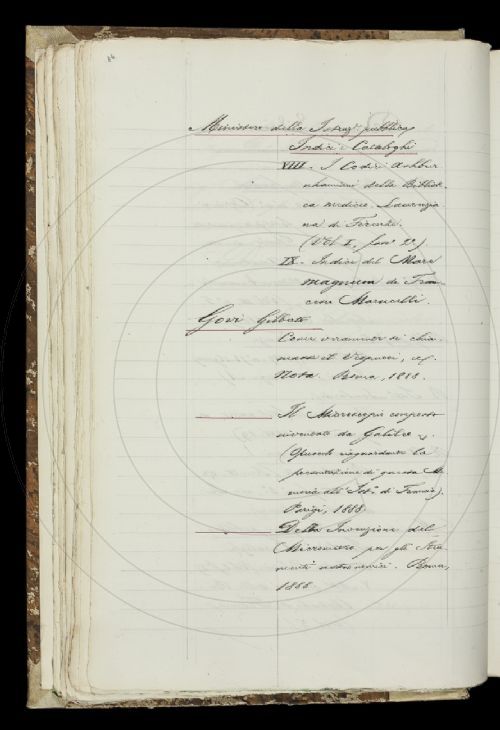 86
Ministero della Istruz. pubblica
Indici e Cataloghi
VIII. I Codici Ashbur
nhamiani della Bibliote
ca mediceo-Laurenzia
na di Firenze.
(Vol. I, fasc. 2.)
IX. Indice del Mare
magnum di Fran
cesco Marucelli.
Govi Gilberto
Come veramente si chia
masse il Vespucci,
Nota. Roma, 1888.
Il Microscopio composto
inventato da Galileo
(Questo risguardante la
presentazione di questa Me
moria all' Ist. di Francia).
Parigi, 1888.
Della Invenzione del
Micrometro per gli Stru
menti astronomici. Roma,
1888.